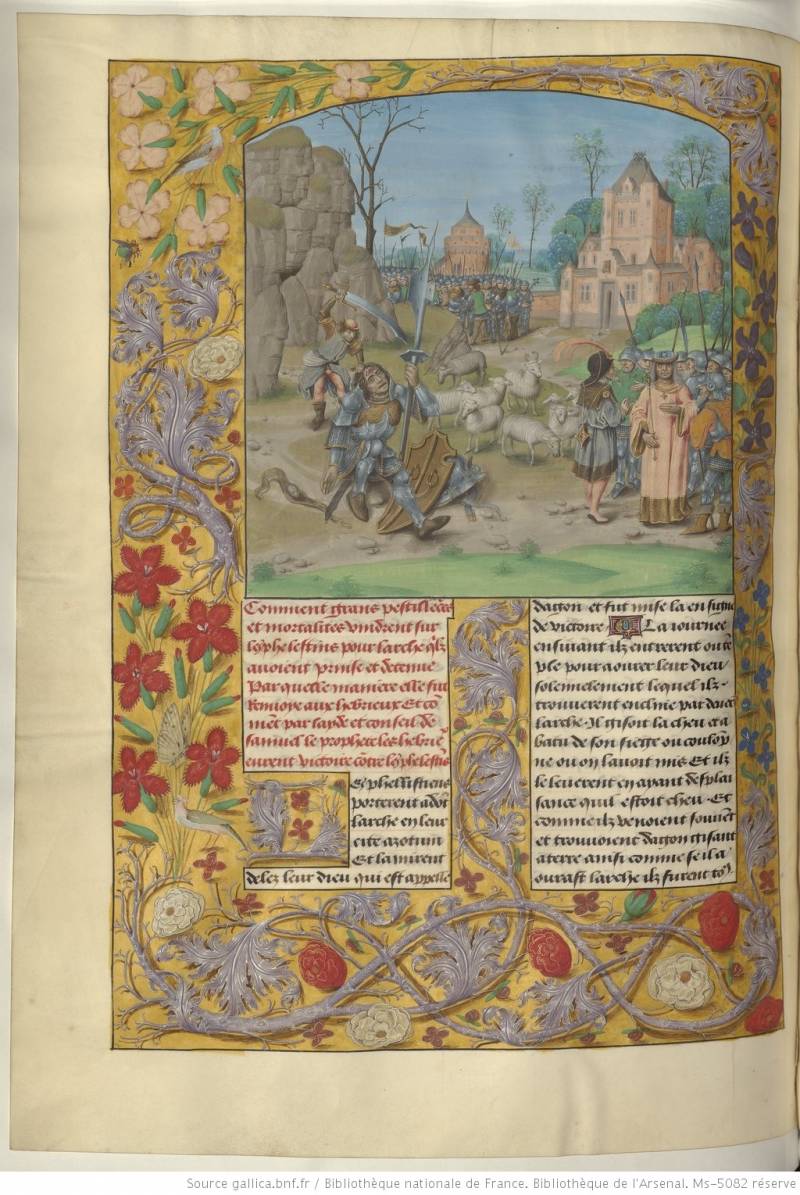 Comment grans pestillẽces
et mortalites vindrent sur
les phelestins pour larche qͥlz
auoient prinse et detenue
Par quelle maniere elle fut
Renuoye aux hebrieux Et cõ
mẽt par layde et conseil de
samuel le prophete les hebriẽ
eurent victoire cõtre les phelestĩs
Les phellistiens
porterent adõt
larche en leur
cite azotum
Et la mirent
delez leur dieu qui est appelle
dagon et fut mise la en signe
de victoire La iournee
ensuiuant ilz entrerent ou tẽ
ple pour aourer leur dieu
solennelement lequel ilz
trouuerent encline par deuãt
larche Il gisoit la cheu et a
batu de son siege ou coulõp
ne ou on lauoit mis Et ilz
le leuerent en ayant desplai
sance quil estoit cheu Et
comme ilz venoient souuẽt
et trouuoient dagon gisant
a terre ainsi comme se il a
ourast larche ilz furent
Source gallica.bnf.fr / Bibliothèque nationale de France. Bibliothèque de l'Arsenal. Ms-5082 réserve